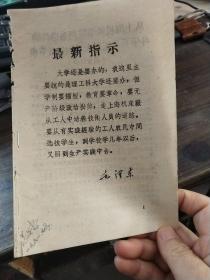 最新指示
大学还是要办的，我这里主
要说的是理工科大学还要办，但
学制要缩短，教育要革命，要无
产阶级政治挂帅，走上海机床厂
从工人中培养技术人员的道路。
要从有实践经验的工人农民中间
选拔学生，到学校学几年以后，
又回到生产实践中去。
毛泽东
1